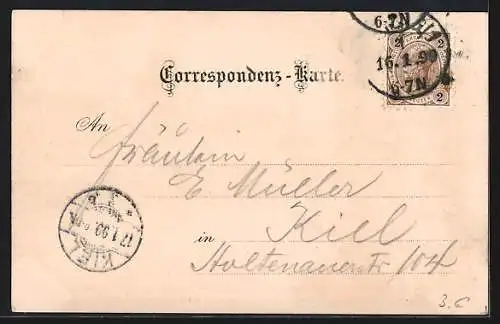 6-7N
2 2
16.1.99
6-7N
2 2
Correspondenz-Karte.
An
Fräulein
E Müller
Kiel
in
Holtenauerstr 104
KIEL
17.1.99
3.C